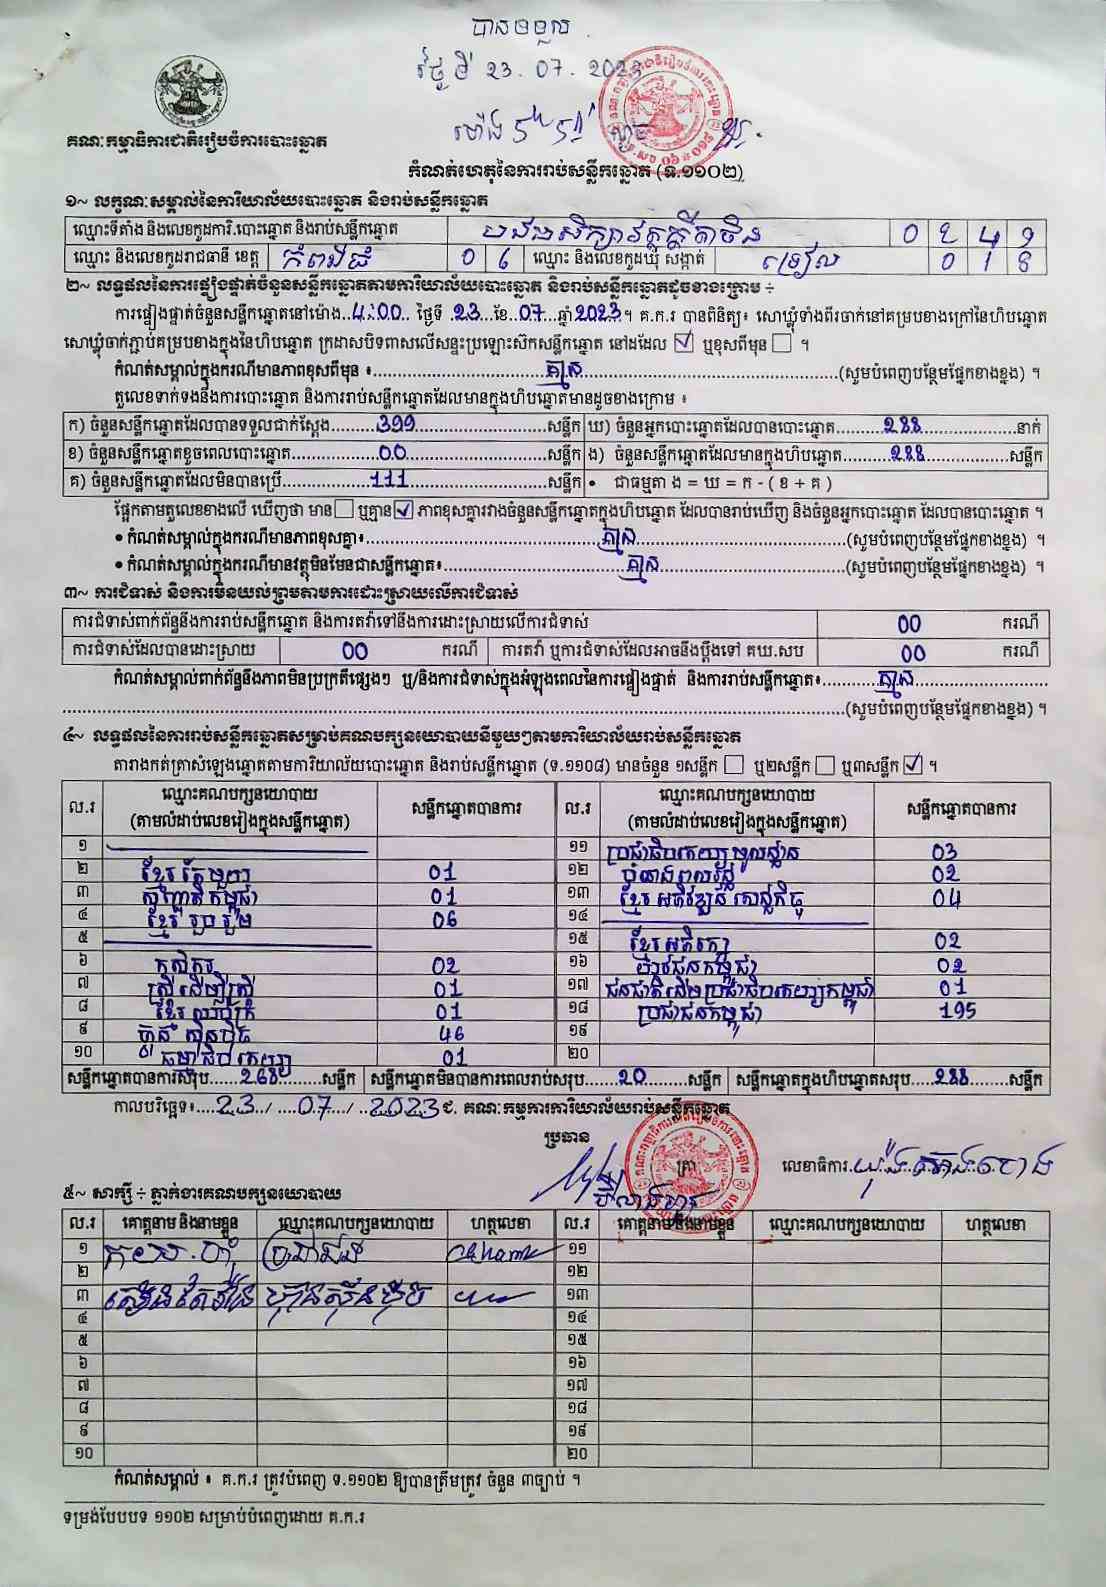 បានទទួល
ថ្ងៃទី 23 . 07 . 2023
ម៉ោង
គណៈកម្មាធិការជាតិរៀបចំការបោះឆ្នោត
កំណត់ហេតុនៃការរាប់សន្លឹកឆ្នោត (ទ.១១០២)
១~ លក្ខណៈសម្គាល់នៃការិយាល័យបោះឆ្នោត និងរាប់សន្លឹកឆ្នោត
ឈ្មោះទីតាំង និងលេខកូដការិ.បោះឆ្នោត និងរាប់សន្លឹកឆ្នោត
ឈ្មោះ និងលេខកូដរាជធានី ខេត្ត កំពង់ធំ 0 6 ឈ្មោះ និងលេខកូដឃុំ សង្កាត់ ទ្រៀល 0 1 8
២~ លទ្ធផលនៃការផ្ទៀងផ្ទាត់ចំនួនសន្លឹកឆ្នោតតាមការិយាល័យបោះឆ្នោត និងរាប់សន្លឹកឆ្នោតដូចខាងក្រោម ÷
ការផ្ទៀងផ្ទាត់ចំនួនសន្លឹកឆ្នោតនៅម៉ោង..4:00.. ថ្ងៃទី .23...ខែ..07...ឆ្នាំ2023។ គ.ក.រ បានពិនិត្យ៖ សោឃ្លុំទាំងពីរចាក់នៅគម្របខាងក្រៅនៃហិបឆ្នោត
សោឃ្លុំចាក់ភ្ជាប់គម្របខាងក្នុងនៃហិបឆ្នោត ក្រដាសបិទពាសលើសន្ទះប្រឡោះស៊កសន្លឹកឆ្នោត នៅដដែល ☑ ឬខុសពីមុន ☐ ។
កំណត់សម្គាល់ក្នុងករណីមានភាពខុសពីមុន ៖ គ្មាន (សូមបំពេញបន្ថែមផ្នែកខាងខ្នង) ។
តួលេខទាក់ទងនឹងការបោះឆ្នោត និងការរាប់សន្លឹកឆ្នោតដែលមានក្នុងហិបឆ្នោតមានដូចខាងក្រោម ៖
ក) ចំនួនសន្លឹកឆ្នោតដែលបានទទួលជាក់ស្តែង........399........សន្លឹក ឃ) ចំនួនអ្នកបោះឆ្នោតដែលបានបោះឆ្នោត........288........នាក់
ខ) ចំនួនសន្លឹកឆ្នោតខូចពេលបោះឆ្នោត........00........សន្លឹក ង) ចំនួនសន្លឹកឆ្នោតដែលមានក្នុងហិបឆ្នោត........288........សន្លឹក
គ) ចំនួនសន្លឹកឆ្នោតដែលមិនបានប្រើ........111........សន្លឹក • ជាធម្មតា ង = ឃ = ក - ( ខ + គ )
ផ្អែកតាមតួលេខខាងលើ ឃើញថា មាន ☐ ឬគ្មាន ☑ ភាពខុសគ្នារវាងចំនួនសន្លឹកឆ្នោតក្នុងហិបឆ្នោត ដែលបានរាប់ឃើញ និងចំនួនអ្នកបោះឆ្នោត ដែលបានបោះឆ្នោត ។
• កំណត់សម្គាល់ក្នុងករណីមានភាពខុសគ្នា៖ គ្មាន (សូមបំពេញបន្ថែមផ្នែកខាងខ្នង) ។
• កំណត់សម្គាល់ក្នុងករណីមានវត្ថុមិនមែនជាសន្លឹកឆ្នោត៖ គ្មាន (សូមបំពេញបន្ថែមផ្នែកខាងខ្នង) ។
៣~ ការជំទាស់ និងការមិនយល់ព្រមតាមការដោះស្រាយលើការជំទាស់
ការជំទាស់ពាក់ព័ន្ធនឹងការរាប់សន្លឹកឆ្នោត និងការតវ៉ាទៅនឹងការដោះស្រាយលើការជំទាស់ 00 ករណី
ការជំទាស់ដែលបានដោះស្រាយ 00 ករណី ការតវ៉ា ឬការជំទាស់ដែលអាចនឹងប្តឹងទៅ គឃ.សប 00 ករណី
កំណត់សម្គាល់ពាក់ព័ន្ធនឹងភាពមិនប្រក្រតីផ្សេងៗ ឬ/និងការជំទាស់ក្នុងអំឡុងពេលនៃការផ្ទៀងផ្ទាត់ និងការរាប់សន្លឹកឆ្នោត៖ គ្មាន
(សូមបំពេញបន្ថែមផ្នែកខាងខ្នង) ។
៤~ លទ្ធផលនៃការរាប់សន្លឹកឆ្នោតសម្រាប់គណបក្សនយោបាយនីមួយៗតាមការិយាល័យរាប់សន្លឹកឆ្នោត
តារាងកត់ត្រាសំឡេងឆ្នោតតាមការិយាល័យបោះឆ្នោត និងរាប់សន្លឹកឆ្នោត (ទ.១១០៨) មានចំនួន ១សន្លឹក ☐ ឬ២សន្លឹក ☐ ឬ៣សន្លឹក ☑ ។
ល.រ ឈ្មោះគណបក្សនយោបាយ សន្លឹកឆ្នោតបានការ ល.រ ឈ្មោះគណបក្សនយោបាយ សន្លឹកឆ្នោតបានការ
(តាមលំដាប់លេខរៀងក្នុងសន្លឹកឆ្នោត) (តាមលំដាប់លេខរៀងក្នុងសន្លឹកឆ្នោត)
១ ១១ ប្រជាធិបតេយ្យមូលដ្ឋាន 03
២ ខ្មែរតែមួយ 01 ១២ 02
៣ សញ្ជាតិកម្ពុជា 01 ១៣ ខ្មែរអភិវឌ្ឍន៍សេដ្ឋកិច្ច 04
៤ ខ្មែររួបរួម 06 ១៤
៥ ១៥ ខ្មែរអភិរក្ស 02
៦ កសិករ 02 ១៦ យុវជនកម្ពុជា 02
៧ ស្ត្រីដើម្បីស្ត្រី 01 ១៧ ជនជាតិដើមប្រជាធិបតេយ្យកម្ពុជា 01
៨ ខ្មែរឈប់ក្រ 01 ១៨ ប្រជាជនកម្ពុជា 195
៩ ហ៊្វុនស៊ិនប៉ិច 46 ១៩
១០ ធម្មាធិបតេយ្យ 01 ២០
សន្លឹកឆ្នោតបានការសរុប.....268........សន្លឹក សន្លឹកឆ្នោតមិនបានការពេលរាប់សរុប.......20.......សន្លឹក សន្លឹកឆ្នោតក្នុងហិបឆ្នោតសរុប.....288.......សន្លឹក
កាលបរិច្ឆេទ៖....23../ ....07..../ ..2023 គណៈកម្មការការិយាល័យរាប់សន្លឹកឆ្នោត
ប្រធាន
លេខាធិការ
៥~ សាក្សី ÷ ភ្នាក់ងារគណបក្សនយោបាយ
ល.រ គោត្តនាម និងនាមខ្លួន ឈ្មោះគណបក្សនយោបាយ ហត្ថលេខា ល.រ គោត្តនាម និងនាមខ្លួន ឈ្មោះគណបក្សនយោបាយ ហត្ថលេខា
១ ប្រជាជន ១១
២ ១២
៣ ហ៊្វុនស៊ិនប៉ិច ១៣
៤ ១៤
៥ ១៥
៦ ១៦
៧ ១៧
៨ ១៨
៩ ១៩
១០ ២០
កំណត់សម្គាល់ ៖ គ.ក.រ ត្រូវបំពេញ ទ.១១០២ ឱ្យបានត្រឹមត្រូវ ចំនួន ៣ច្បាប់ ។
ទម្រង់បែបបទ ១១០២ សម្រាប់បំពេញដោយ គ.ក.រ